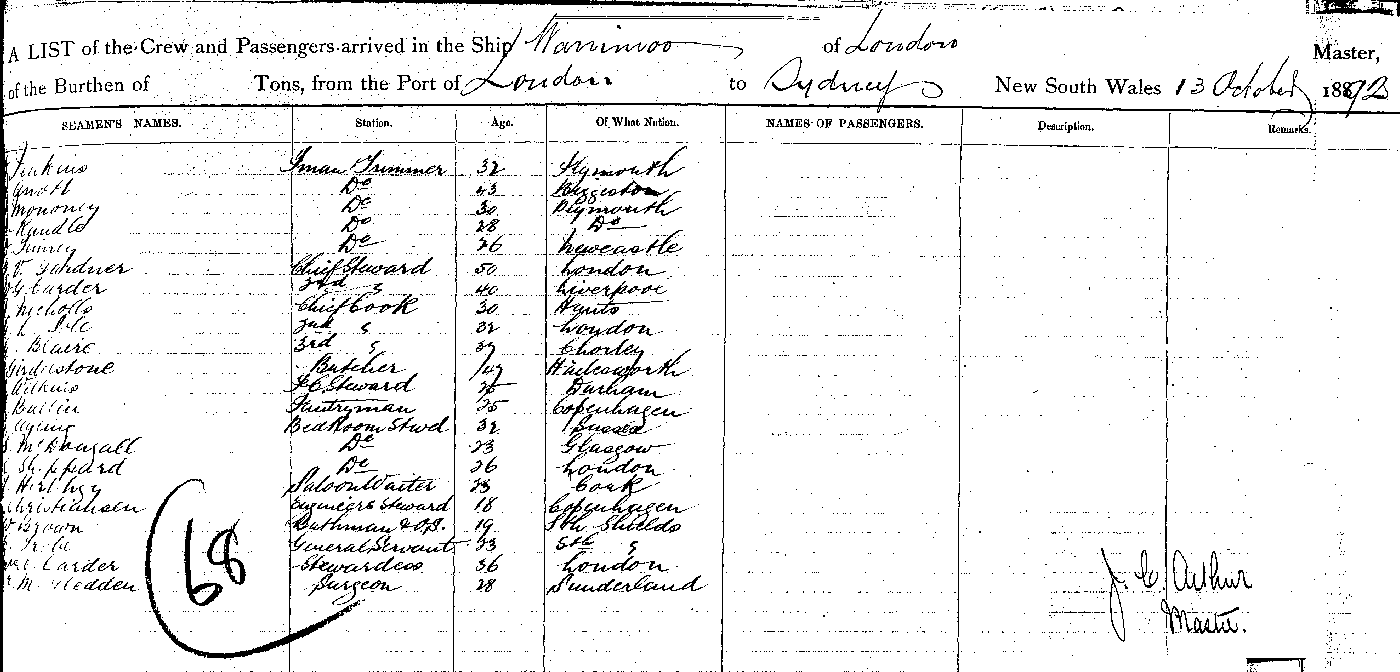 A LIST of the Crew and Passengers arrived in the Ship Warrimoo of London Master,
of the Burthen of Tons, from the Port of London to Sydney New South Wales 13 October 1892
SEAMEN'S NAMES. Station. Age. Of What Nation. NAMES OF PASSENGERS. Description. Remarks.
Jenkins Fman Trimmer 32 Plymouth
Do 43
Do 30 Plymouth
Rundle Do 28 Do
Do 26 Newcastle
Gardner Chief Steward 50 London
Carder 2nd " 40 Liverpool
Nicholls Chief Cook 30 Hants
2nd " 32 London
Blaire 3rd " 39 Chorley
Girdlestone Butcher 47
Wilkins F C Steward 25 Durham
Pantryman 25 Copenhagen
Bedroom Stwd 32 Sussex
McDougall Do 23 Glasgow
Sheppard Do 26 London
Saloon Waiter 23 Cork
Christiansen Engineers Steward 18 Copenhagen
Brown Bathman & O.S. 19 Sth Shields
General Servant 33 Sth "
Carder Stewardess 36 London
Surgeon 28 Sunderland
68
J. C. Arthur
Master.